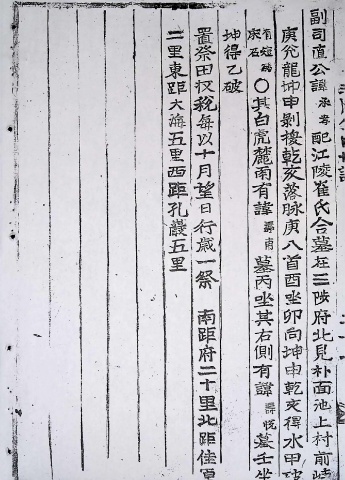 副司直公諱承寄配江陵崔氏合墓在三陟府北見朴面池上村前岐
庚兊龍坤申剝換乾亥落脉庚入首酉坐卯向坤申乾亥得水甲破
有短碣床石〇其白虎麓南有諱壽南墓丙坐其右側有諱壽悅墓壬坐
坤得乙破
置祭田收税每以十月望日行歲一祭 南距府二十里北距
二里東距大海五里西距孔叢五里